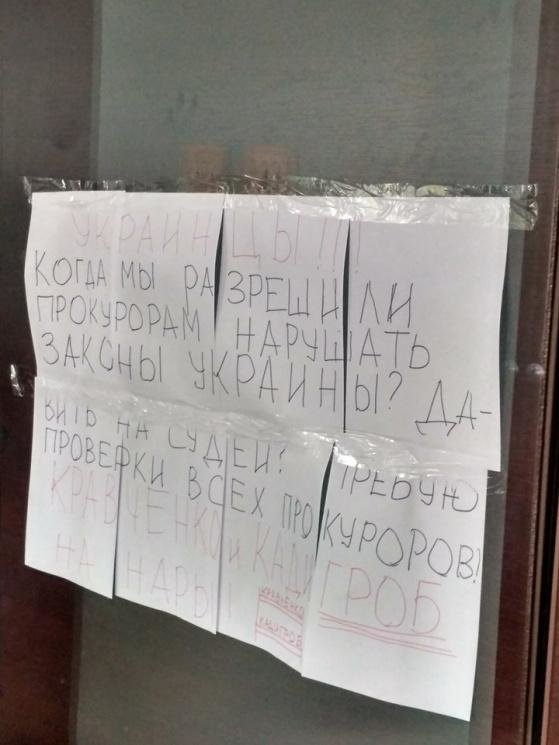 УКРАИНЦЫ!!!!
КОГДА МЫ РАЗРЕШИЛИ
ПРОКУРОРАМ НАРУШАТЬ
ЗАКОНЫ УКРАИНЫ? ДА-
ВИТЬ НА СУДЕЙ? ТРЕБУЮ
ПРОВЕРКИ ВСЕХ ПРОКУРОРОВ!
КРАВЧЕНКО и КАЦИГРОБ
НА НАРЫ!
КРАВЧЕНКО
КАЦИГРОБ